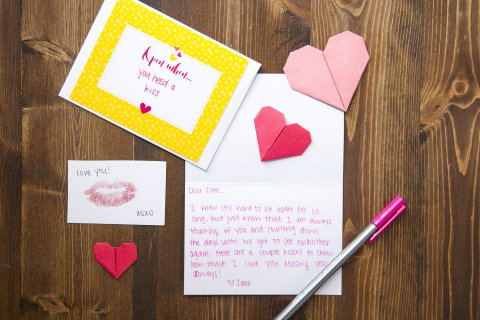 Open when...
you need a
kiss
love you!
xoxo
Dear Zane,
I know it's hard to be apart for so
long, but just know that I am always
thinking of you and counting down
the days until we get to see eachother
again. Here are a couple kisses to show
how much I love you. Missing you
always!
♡ Jane